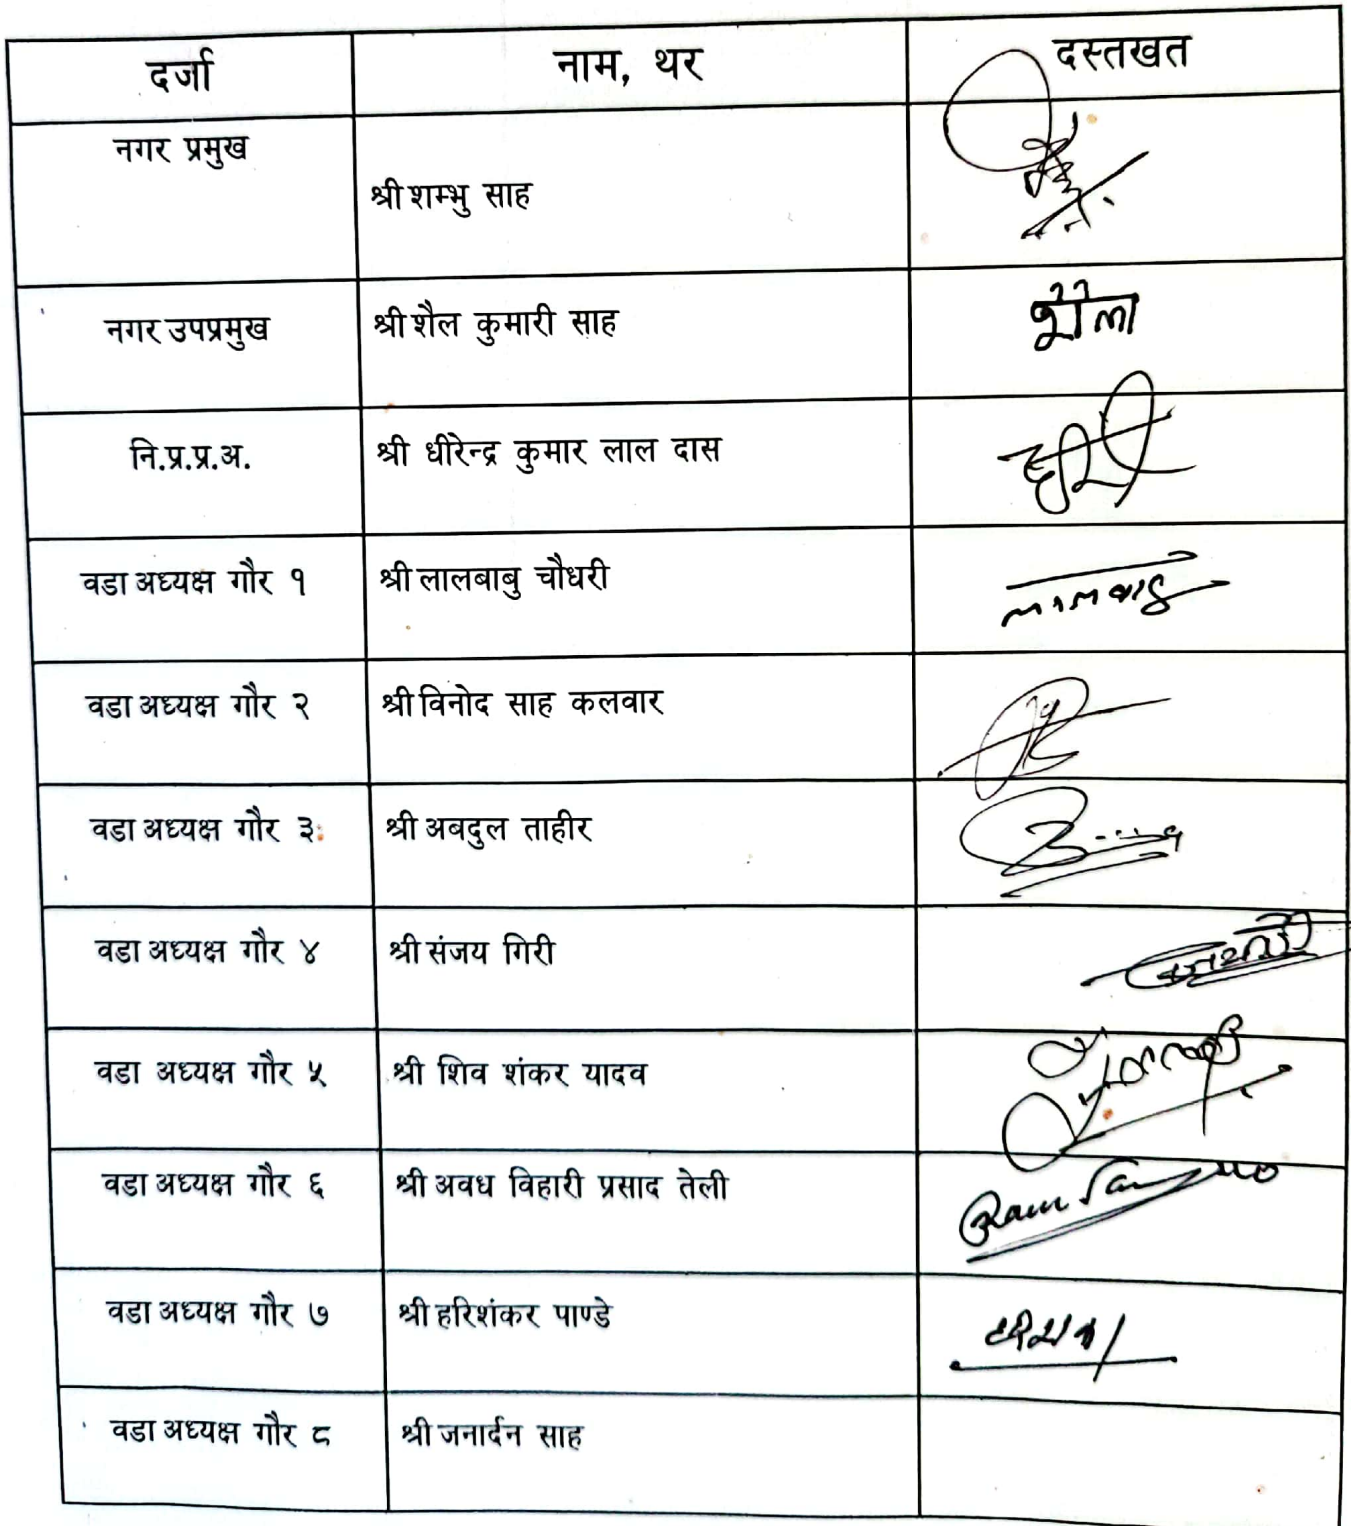 दर्जा नाम, थर दस्तखत
नगर प्रमुख
श्री शम्भु साह
नगर उपप्रमुख श्री शैल कुमारी साह शैला
नि.प्र.प्र.अ. श्री धीरेन्द्र कुमार लाल दास
वडा अध्यक्ष गौर १ श्री लालबाबु चौधरी लालबाबु
वडा अध्यक्ष गौर २ श्री विनोद साह कलवार
वडा अध्यक्ष गौर ३ श्री अबदुल ताहीर
वडा अध्यक्ष गौर ४ श्री संजय गिरी
वडा अध्यक्ष गौर ५ श्री शिव शंकर यादव
वडा अध्यक्ष गौर ६ श्री अवध विहारी प्रसाद तेली
वडा अध्यक्ष गौर ७ श्री हरिशंकर पाण्डे
वडा अध्यक्ष गौर ८ श्री जनार्दन साह